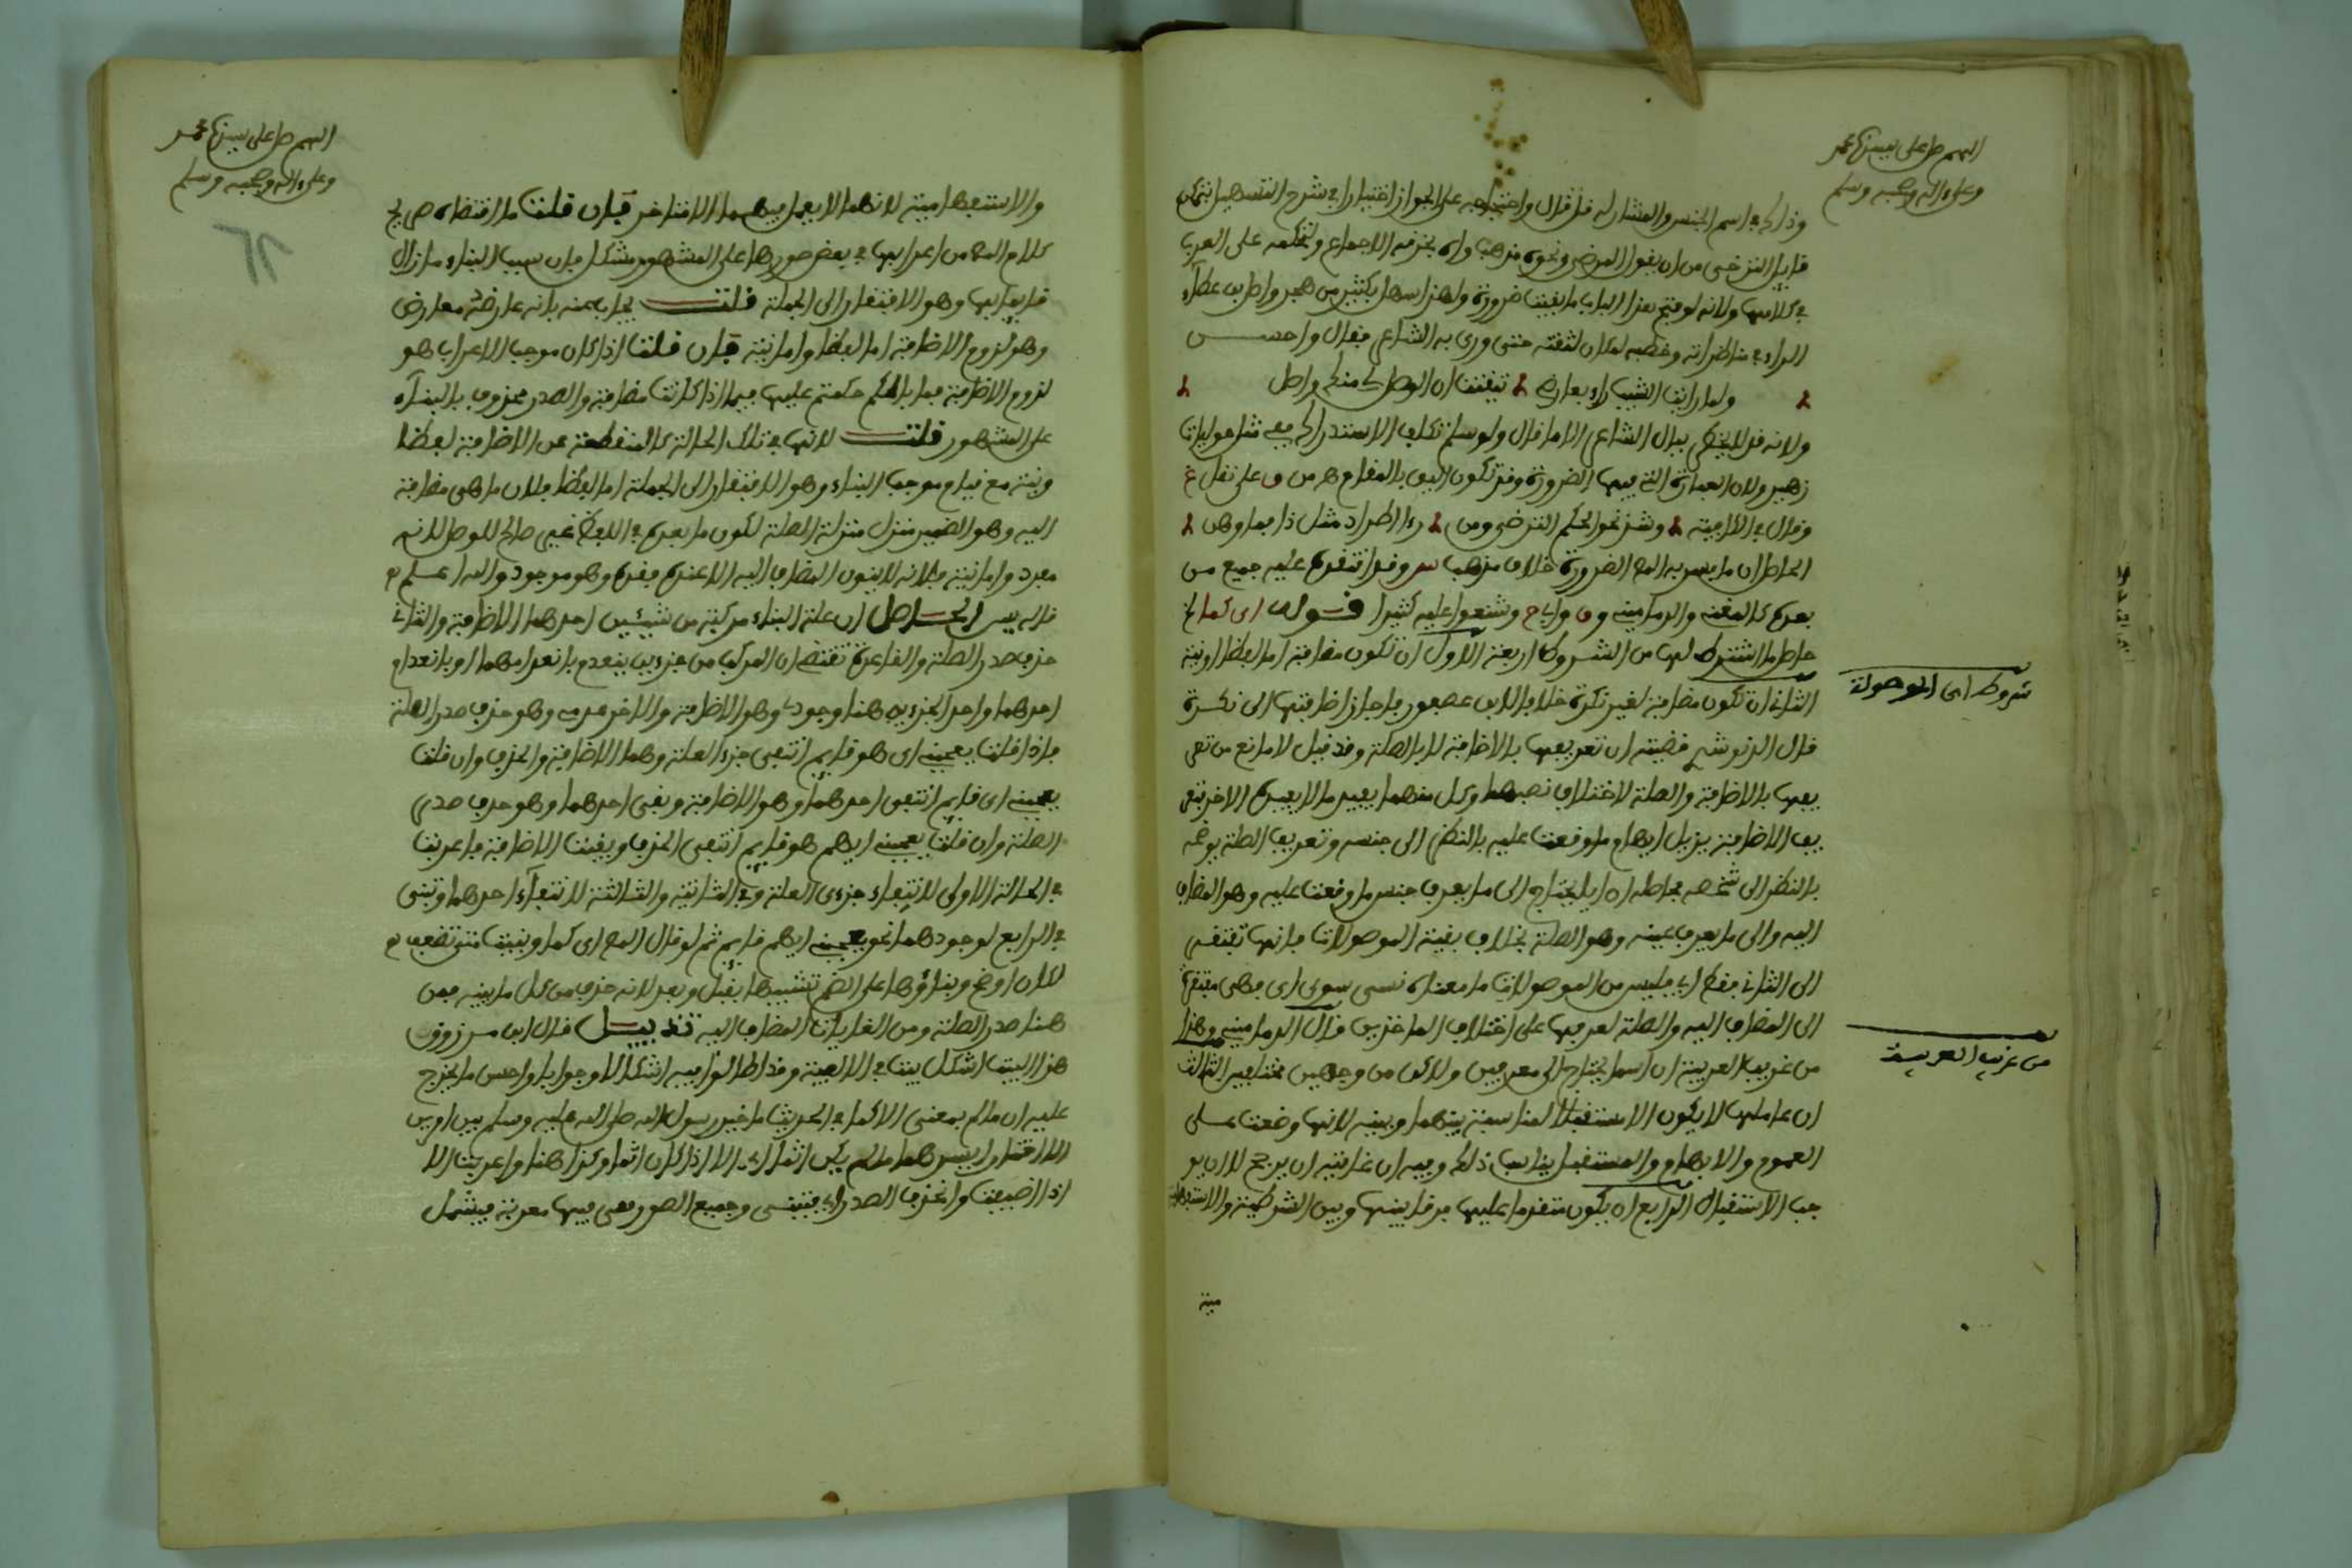 اللهم صل على سيدنا محمد
وعلى ءاله وصحبه وسلم
وذلك في اسم الجنس والمشار له قد قال واحتجاجه على الجواز اختيارا في شرح التسهيل بتمكن
قايل الترضى من ان يقول المرضي ونحوه مذهب واه يخرقه الاجماع وتحكمه على العرب
في كلامها ولانه لو فتح هذا الباب ما بقيت ضرورة ولهذا سها بكثير من هجر واصل بن عطاء
الراء في مناظراته وخطبه لمكان لثغته حتى ورى به الشاعر فقال واحسن
ولما رايت الشيب راء بعارضي تيقنت ان الوصل لي منك واصل
ولانه قد لا يخطر ببال الشاعر الا ما قال ولو سلم تكلف الاستدراك فمع شاهد حوليات
زهير ولان العبارة التي فيها الضرورة وقد تكون اليق بالمقام
وقال في الكافية وشذ نحو الحكم الترضى ومن رءا اطراد مثل ذا فما وهن
الحاصل ان ما يفسر به المص الضرورة خلاف مذهب س وقد انتقده عليه جميع من
بعده كالمغني والدماميني وشنعوا عليه كثيرا قوله اي كما الخ
حاصل ما اشترط لها من الشروط اربعة الاول ان تكون مضافة اما لفظا او نية
شروط اي الموصولة
الثاني ان تكون مضافة لغير نكرة خلافا لابن عصفور فاجاز اضافتها الى نكرة
قال الزركشي قضيته ان تعريفها بالاضافة لا بالصلة وقد قيل لا مانع من تعر
يفها بالاضافة والصلة لاختلاف نصبهما وكل منهما يفيد ما لا يفيده الاخر فتعر
يف الاضافة يزيل ابهام ما وقعت عليه بالنظر الى جنسه وتعريف الصلة يوضحه
بالنظر الى شخصه فحاصله ان ايا يحتاج الى ما يعرف جنس ما وقعت عليه وهو المضاف
اليه والى ما يعرف عينه وهو الصلة بخلاف بقية الموصولات فانها تفتقر
الى الثاني فقط اي فليس من الموصولات ما معناه نسبي سوى اي فهي مفتقرة
الى المضاف اليه والصلة لعرفها على اختلاف الماخذين قال الدماميني وهذا
من غريب العربية ان اسما يحتاج الى معرفين ولاكن من وجهين مختلفين الثالث
من غريب العربية
ان عاملها لا يكون الا مستقبلا لمناسبة بينهما وبينه لانها وضعت على
العموم والابهام والمستقبل يناسب ذلك وفيه ان غايته ان يرجح لا ان يو
جب الاستقبال الرابع ان يكون متقدما عليها فرقا بينها وبين الشرطية والاستفها
مية
اللهم صل على سيدنا محمد
وعلى ءاله وصحبه وسلم
والاستفهامية لانهما لا يعمل فيهما الا متاخر فان قلت ما اقتضاه صريح
كلام المص من اعرابها في بعض صورها على المشهور مشكل فان سبب البناء ما زال
قايما بها وهو الافتقار الى الجملة قلت يجاب عنه بانه عارضه معارض
وهو لزوم الاضافة اما لفظا واما نية فان قلت اذا كان موجب الاعراب هو
لزوم الاضافة فما بالكم حكمتم عليها فيما اذا كانت مضافة والصدر محذوف بالبناء
على المشهور قلت لانها في تلك الحالة كالمنقطعة عن الاضافة لفظا
ونية مع قيام موجب البناء وهو الافتقار الى الجملة اما لفظا فلان ما هي مضافة
اليه وهو الضمير منزل منزلة الصلة لكون ما بعده في اللفظ غير صالح للوصل لانه
مفرد واما نية فلانه لا ينوى المضاف اليه الا عند فقده وهو موجود والله اعلم
قاله يس الحاصل ان علة البناء مركبة من شيئين احدهما الاضافة والثاني
حذف صدر الصلة والقاعدة تقتضي ان المركب من جزءين ينعدم بانعدامهما او بانعدام
احدهما واحد الجزءين هنا وجودي وهو الاضافة والاخر عدمي وهو حذف صدر الصلة
فاذا قلت يعجبني اي هو قايم انتفى جزءا العلة وهما الاضافة والحذف وان قلت
يعجبني اي قايم انتفى احدهما وهو الاضافة وبقي احدهما وهو حذف صدر
الصلة وان قلت يعجبني ايهم هو قايم انتفى الحذف وبقيت الاضافة فاعربت
في الحالة الاولى لانتفاء جزءي العلة وفي الثانية والثالثة لانتفاء احدهما وتبنى
في الرابع لوجودهما نحو يعجبني ايهم قايم ثم لو قال المص اي كما وبنيت متى تضف
لكان اوضح وبناؤها على الضم تشبيها بقبل وبعد لانه حذف من كل ما يبينه فمن
هنا صدر الصلة ومن الغايات المضاف اليه تذييل قال ابن مرزوق
هذا البيت اشكل بيت في الالفية وقد اطالوا فيه اشكالا وجوابا واحسن ما يخرج
عليه ان ما لم بمعنى الا كما في الحديث ما خير رسول الله صلى الله عليه وسلم بين امرين
الا اختار ايسرهما ما لم يكن اثما اي الا اذا كان اثما وكذا هنا واعربت الا
اذا اضيفت وانحذف الصدر اي فتبنى وجميع الصور هي فيها معربة فيشمل